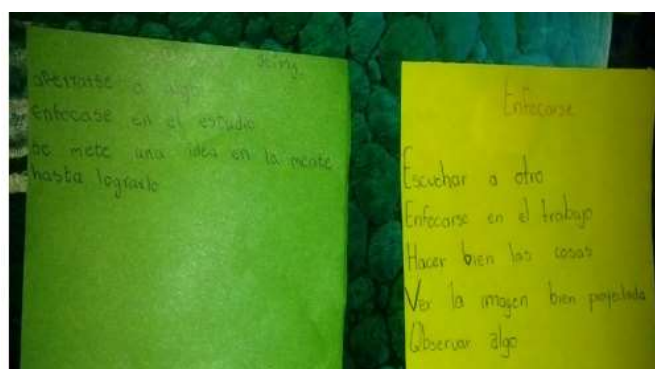 aferrarse a algo
enfocase en el estudio
se mete una idea en la mente
hasta lograrlo
Enfocarse
Escuchar a otro
Enfocarse en el trabajo
Hacer bien las cosas
Ver la imagen bien proyectada
Observar algo